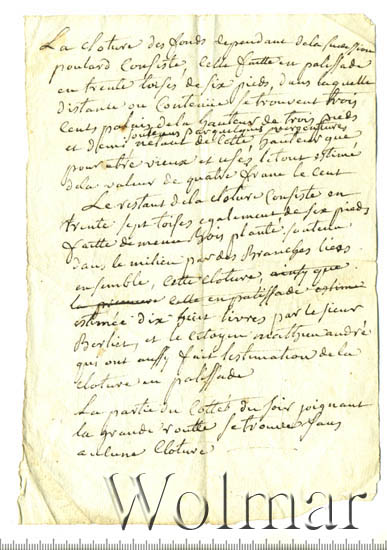 La cloture des fonds dependant de la succession
poulard Consiste, Celle faitte en palissade
en trente toises de six pieds, dans laquelle
distance ou Contenue se trouvent trois
Cents de la hauteur de trois pieds
et demi soutenus par quelques
n'etant de Cette hauteur que
pour etre vieux et uses le tout estimé
de la valeur de quatre franc le Cent
Le restant de la cloture Consiste en
trente sept toises egalement de six pieds
faitte de menu Bois planté soutenu
dans le milieu par des Branches liees
ensemble, Cette Cloture, ainsy que
la premiere Celle en palissade estime
estimée dix huit livres par le sieur
Berlier, et le Citoyen mathieu andré
qui ont aussy fait l'estimation de la
Cloture en palissade
La partie du Cotté du soir joignant
la grande routte se trouve sans
aucune Cloture
Wolmar